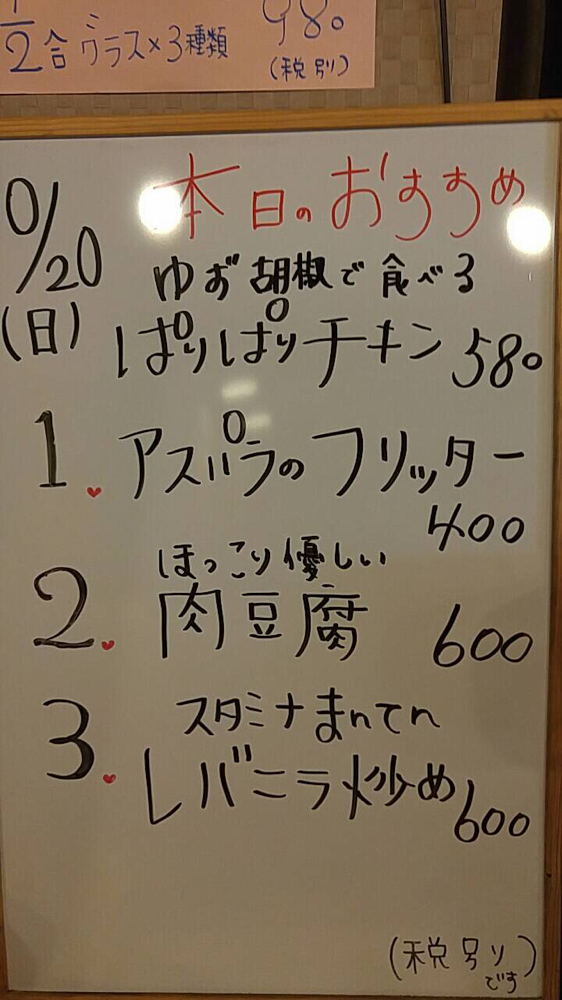 1/2合グラス×3種類 980
(税別)
本日のおすすめ
/20
(日)
ゆず胡椒で食べる
ぱりぱりチキン 580
1. アスパラのフリッター
400
ほっこり優しい
2. 肉豆腐 600
スタミナまんてん
3. レバニラ炒め 600
(税別りです)